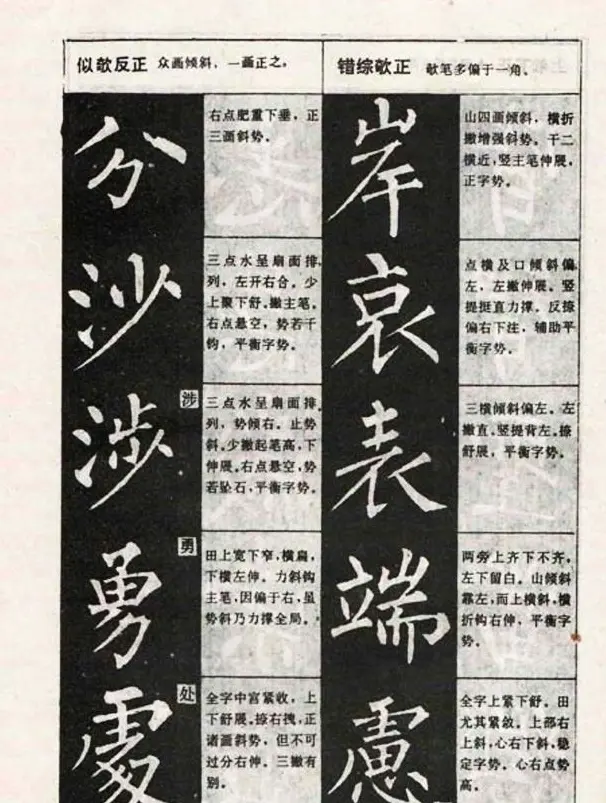 错综欹正 欹笔多偏于一角。
岸
山四画倾斜，横折
撇增强斜势。干二
横近，竖主笔伸展，
正字势。
哀
点横及口倾斜偏
左，左撇伸展。竖
提挺直力撑。反捺
偏右下注，辅助平
衡字势。
表
三横倾斜偏左。左
撇直，竖提背左。捺
舒展，平衡字势。
端
两旁上齐下不齐，
左下留白。山倾斜
靠左，而上横斜，横
折钩右伸，平衡字
势。
慮
全字上紧下舒。田
尤其紧敛。上部右
上斜，心右下斜，稳
定字势。心右点势
高。
似欹反正 众画倾斜，一画正之。
分
右点肥重下垂，正
三画斜势。
沙
三点水呈扇面排
列，左开右合。少
上聚下舒。撇主笔。
右点悬空，势若千
钩，平衡字势。
涉
涉
三点水呈扇面排
列，势倾右。止势
斜。少撇起笔高，下
伸展。右点悬空，势
若坠石，平衡字势。
勇
勇
田上宽下窄，横扁，
下横左伸。力斜钩
主笔，因偏于右，虽
势斜乃力撑全局。
处
處
全字中宫紧收，上
下舒展。捺右拽，正
诸画斜势，但不可
过分右伸。三撇有
别。